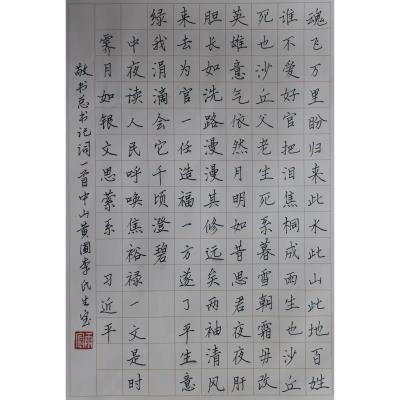 魂飞万里盼归来此水此山此地百姓
谁不爱好官把泪焦桐成雨生也沙丘
死也沙丘父老生死系暮雪朝霜毋改
英雄意气依然月明如昔思君夜夜肝
胆长如洗路漫漫其修远矣两袖清风
来去为官一任造福一方遂了平生意
绿我涓滴会它千顷澄碧
中夜读人民呼唤焦裕禄一文是时
霁月如银文思萦系 习近平
敬书总书记词一首中山黄圃李